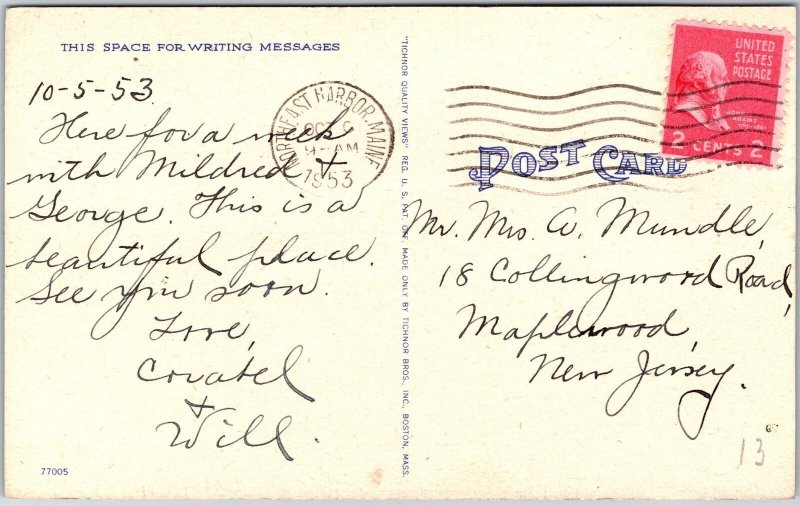 THIS SPACE FOR WRITING MESSAGES
10-5-53.
Here for a week
with Mildred +
George. This is a
beautiful place.
See you soon.
Love,
Covatel
+
Will.
77005
NORTHEAST HARBOR, MAINE
OCT
9-AM
1953
"TICHNOR QUALITY VIEWS" REG. U. S. PAT. OFF. MADE ONLY BY TICHNOR BROS., INC., BOSTON, MASS.
UNITED
STATES
POSTAGE
JOHN
ADAMS
2 CENTS 2
POST CARD
Mr. Mrs. A. Mundle,
18 Collingwood Road,
Maplewood,
New Jersey.
13